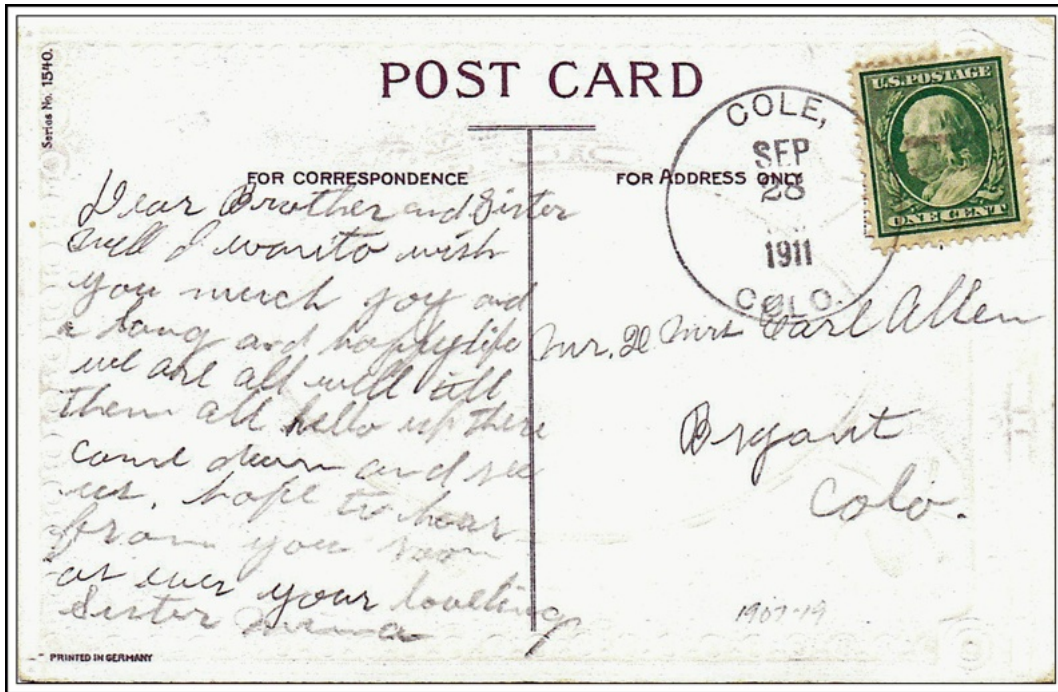 Series No. 1540.
POST CARD
FOR CORRESPONDENCE
FOR ADDRESS ONLY
COLE,
SEP
28
1911
COLO.
U.S. POSTAGE
ONE CENT
Dear Brother and Sister
well I want to wish
you much joy and
a long and happy life
we are all well tell
them all hello up there
come down and see
us. hope to hear
from you soon
as ever your loveing
Sister
Mr. & Mrs Earl Allen
Bryant
Colo.
1907-19
PRINTED IN GERMANY